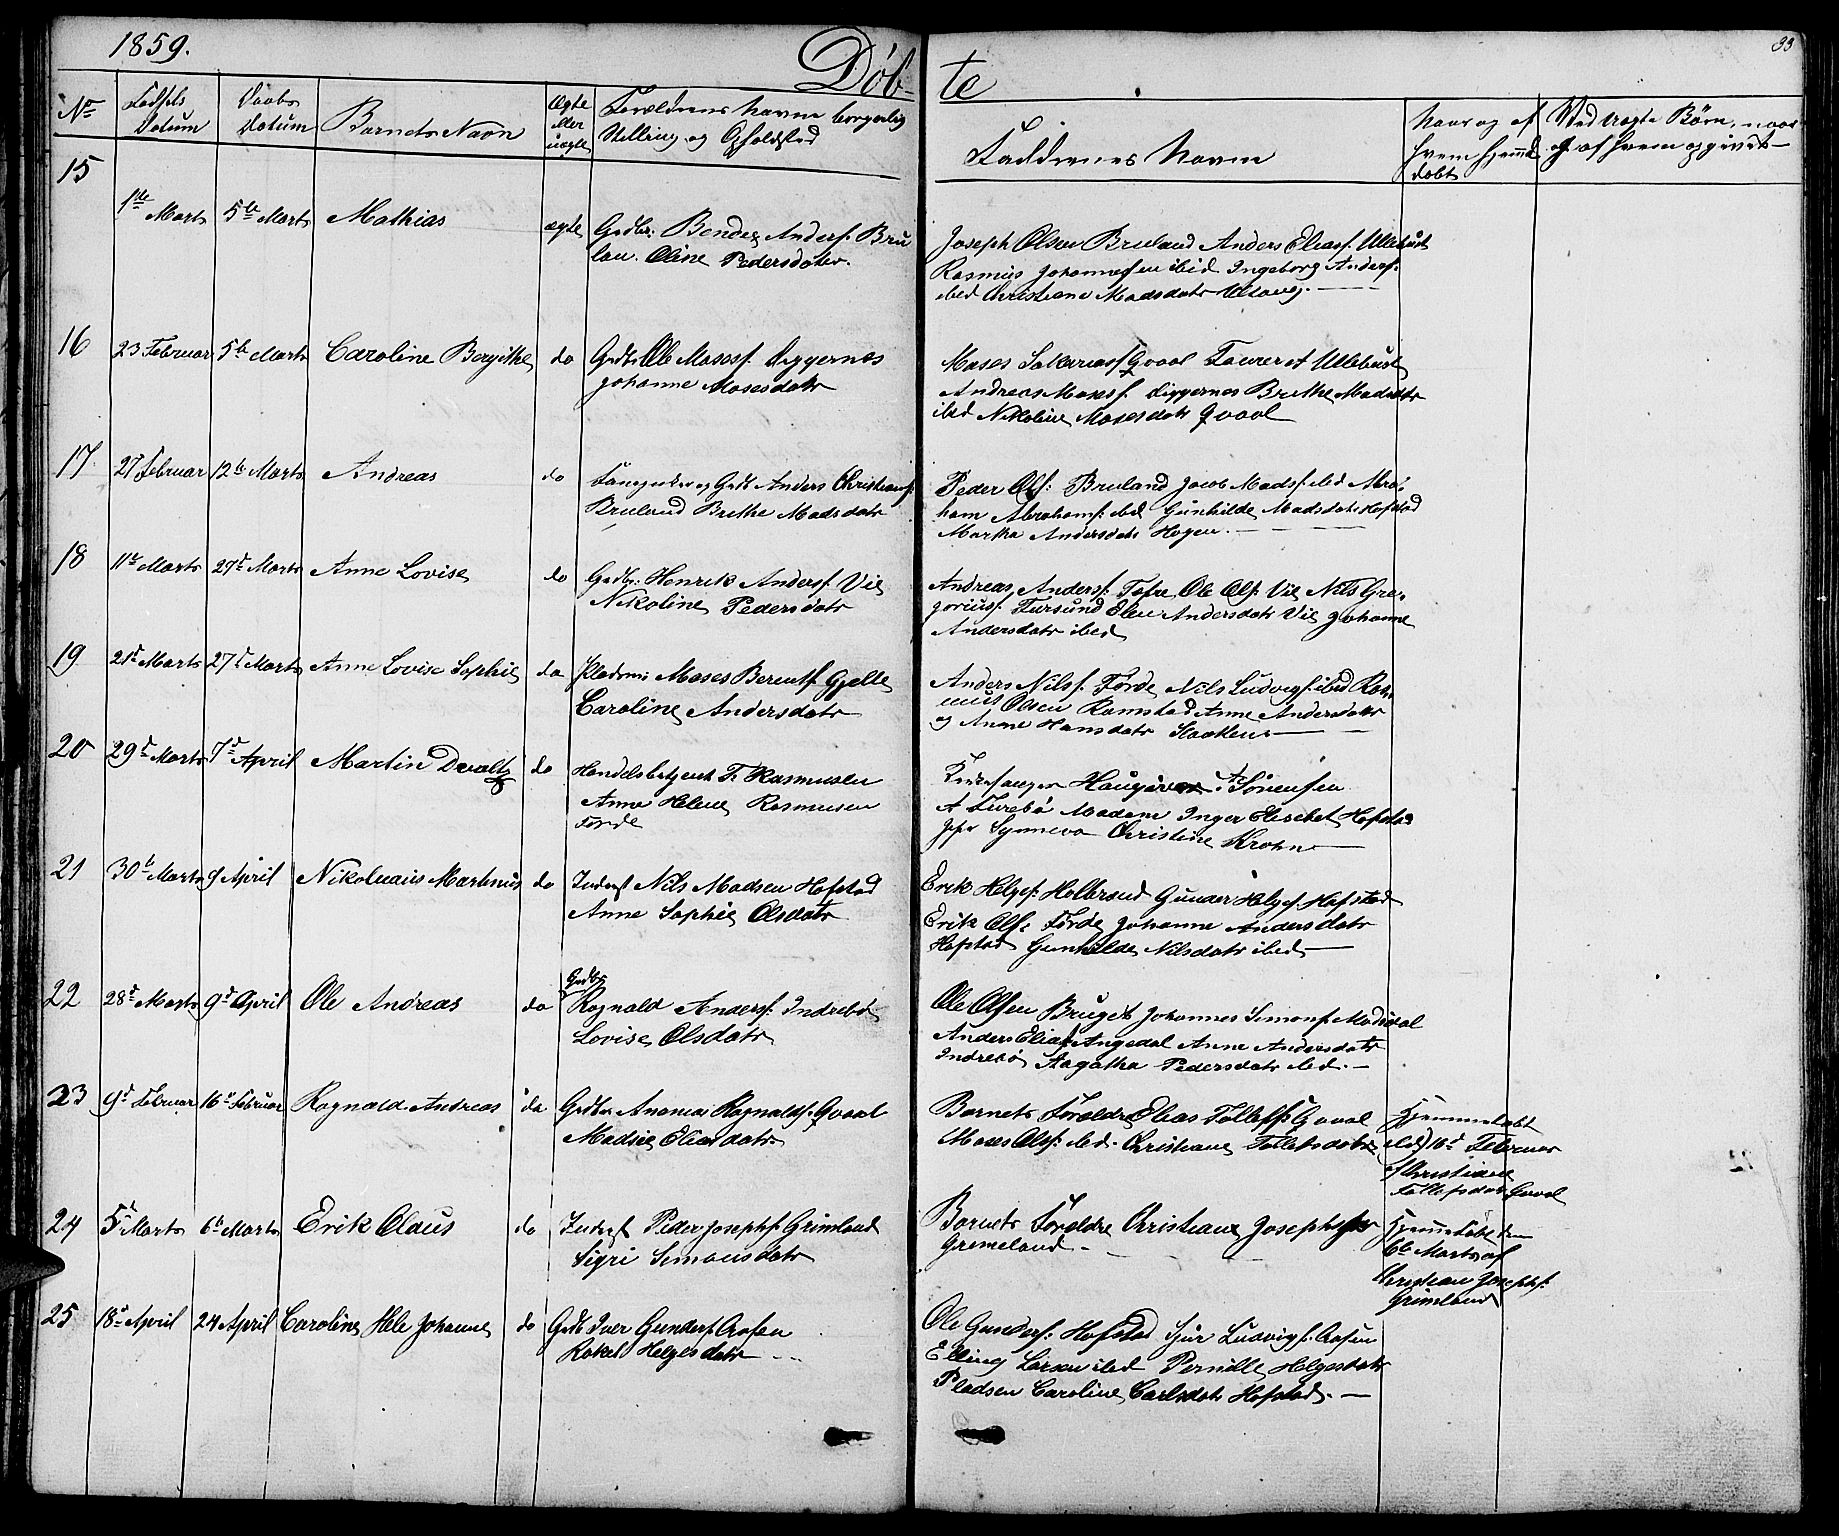 1859.
Döb-
te
33
No
Födsels Datum
Daabs Datum
Barnets Navn
Ægte eller uægte
Forældrenes Navne borgerlig Stilling og Opholdsted
Faddrenes Navne
Naar og af hvem hjemmedöbt
Ved uægte Börn, naar og af hvem opgivet
15
1ste Marts 5te Marts Mathias ægte Grdbr. Bendix Andersf. Bru
lan. Oline Pedersdater.
Joseph Olsen Bruland Anders Eliasf. Ullebust
Rasmus Johannesen ibid Ingeborg Andersf.
ibid Christiane Madsdatr
16 23 Februar 5te Marts Caroline Bergithe do Grdbr Ole Mosesf. Diggernes
Johanne Mosesdatr
Moses Sakariasf Qvaal Ullebust
Andreas Mosesf. Diggernes Brithe Madsdtr
ibid Nikoline Mosesdatr Qvaal
17. 27 Februar 12te Marts Andreas do Grdb Anders Christiansf.
Bruland Brithe Madsdatr
Peder Olsf: Bruland Jacob Madsf. ibid Abra-
ham Abrahamsf. ibid Gunhilde Madsdatr Hofstad
Martha Andersdatr Hogen.
18 11te Marts 27d Marts Anne Lovise do Grdbr: Henrik Andersf. Vie
Nikoline Pedersdatr
Andreas Andersf. Tofte Ole Olsf. Vie Nils Gre-
goriusf. Farsund Elen Andersdatr Vie Johanne
Andersdatr ibid
19 21d Marts 27d Marts Anne Lovise Sophie do Pladsm: Moses Berentsf. Gjelle
Caroline Andersdatr
Anders Nilsf. Förde Nils Ludvigsf. ibid Ras-
mus Olsen Ramstad Anne Andersdatr
og Anne Hansdatr Slaaken
20 29d Marts 7d April Martin Devaltz do Handelsbetjent F. Rasmusen
Anne Helene Rasmusen
Förde
Kirkesanger Haugeren A. Sörensen
A Furebö Madame Inger Elisebet Hofstad
Jgfr Synneva Christine Krohn
21 30te Marts 9 April Nikolaus Martinus do Inderst Nils Madsen Hofstad
Anne Sophie Olsdatr
Erik Helgesf. Halbrend Gunder Helgesf. Hofstad
Erik Olsf. Förde Johanne Andersdatr
Hofstad Gunhilde Nilsdatr ibid
22 28d Marts 9d April Ole Andreas do Grdbr
Ragnald Andersf. Indrebö
Lovise Olsdatr
Ole Olsen Bruget Johannes Simonsf. Mosdal
Anders Eliasf. Angedal Anne Andersdatr
Indrebö Aagatha Pedersdatr ibid.
23 9d Februar 16d Februar Ragnald Andreas do Grdbr Ananias Ragnaldsf. Qvaal
Madsie Eliasdatr
Barnets Forældre Elias Tollefsf: Qvaal
Moses Olsf: ibid. Christiane Tollefsdatr
Hjemmedöbt
ibid 16d Februar
af Christiane
Tollefsdatr Qvaal
24 5te Marts 6te Marts Erik Olaus do Inderst Peder Josephsf. Grimland
Sigri Simonsdatr
Barnets Forældre Christiane Josephsf
Grimeland
Hjemmedöbt den
6te Marts af
Christian Josephsf.
Grimland
25 18d April 24 April Caroline Hele Johanne do Grdb Iver Gundersf Aasen
Rakel Helgesdatr
Ole Gundersf: Hofstad Siur Ludvigsf. Aasen
Elling Larsen ibid Pernille Helgesdatr
Pladsen Caroline Carlsdatr Hofstad.